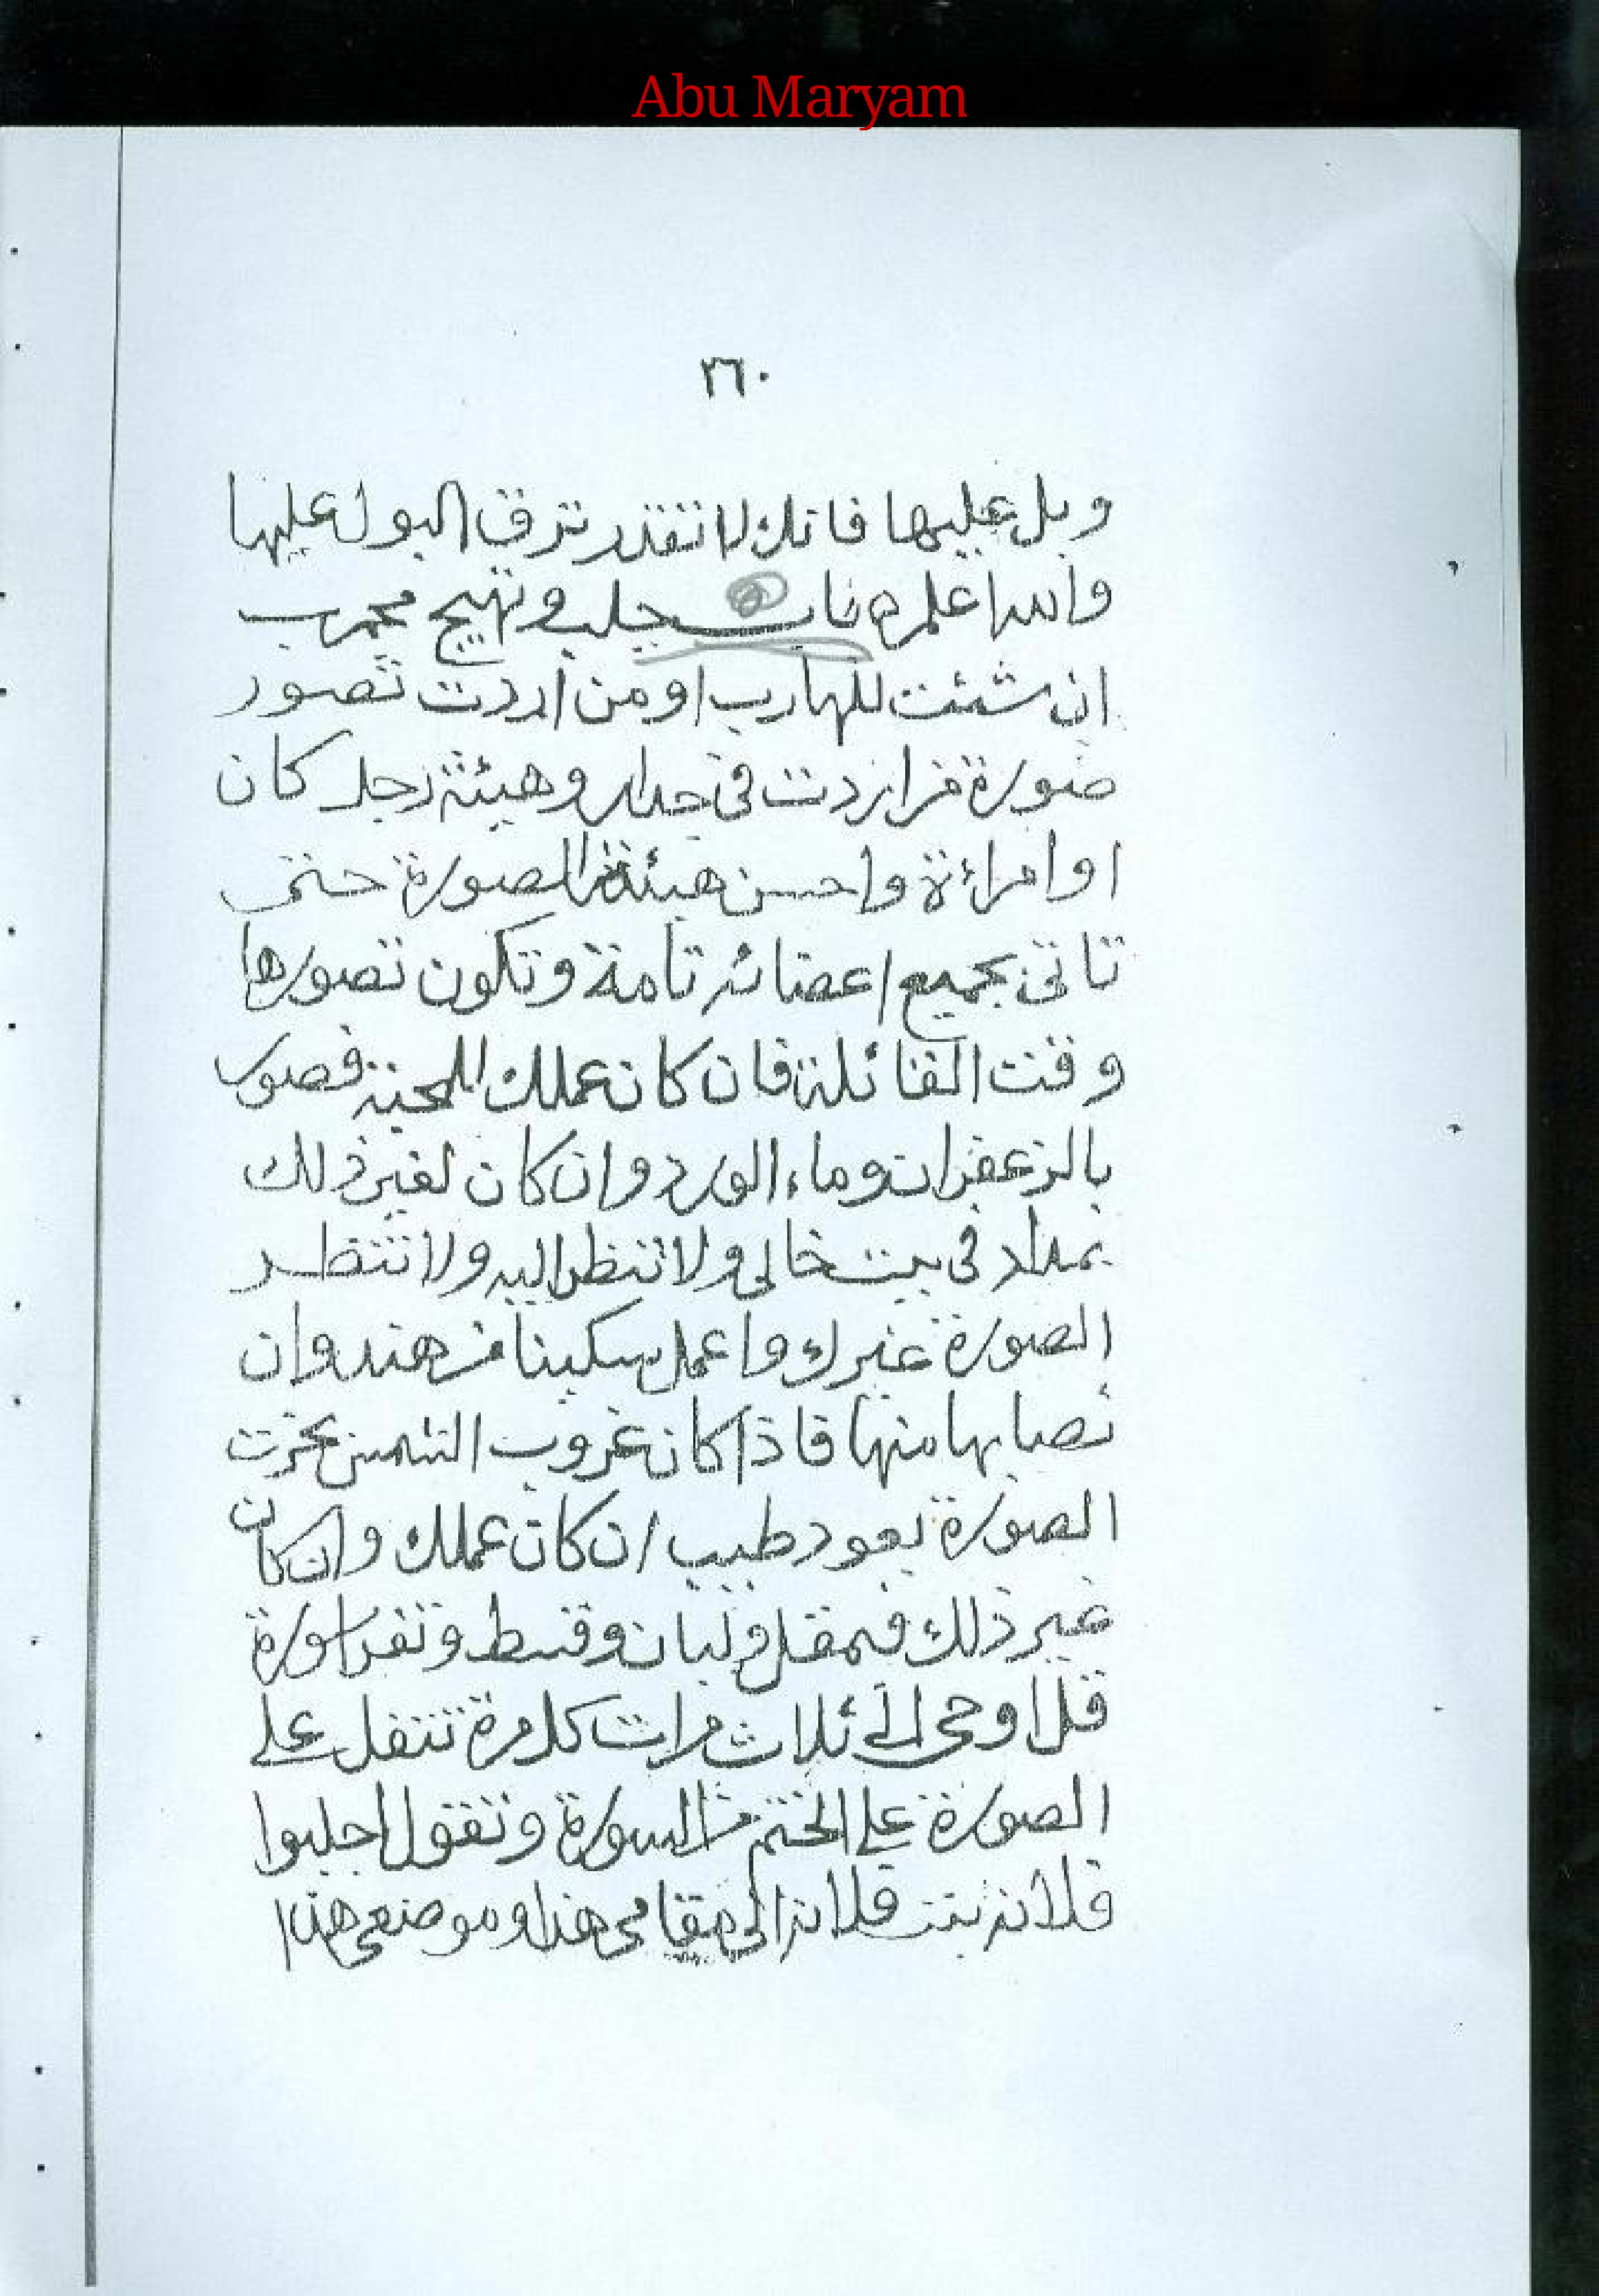 Abu Maryam
٢٦٠
وبل عليها فانك لا تقدر تزق البول عليها
والله اعلم باب جلب وتهيج مجرب
ان شئت للهارب او من اردت تصور
صورة من اردت فى جدار وهيئة رجل كان
او امراءة واحسن هيئة الصورة حتى
تاتى بجميع اعضائه تامة وتكون تصورها
وقت القائلة فان كان عملك للمحبة فصور
بالزعفران وماء الورد وان كان لغير ذلك
بمداد فى بيت خالى ولا تنظر اليه ولا تنظر
الصورة غيرك واعمل سكينا من هندوان
نصابها منها فاذا كان غروب الشمس بخرت
الصورة بعود طيب ان كان عملك وان كان
غير ذلك فمقل ولبان وقسط وتقرا سورة
قل اوحى الى ثلاث مرات كل مرة تتفل على
الصورة على الختم من السورة وتقول اجلبوا
فلانه بنت فلانه الى مقامى هذا وموضعى هذا